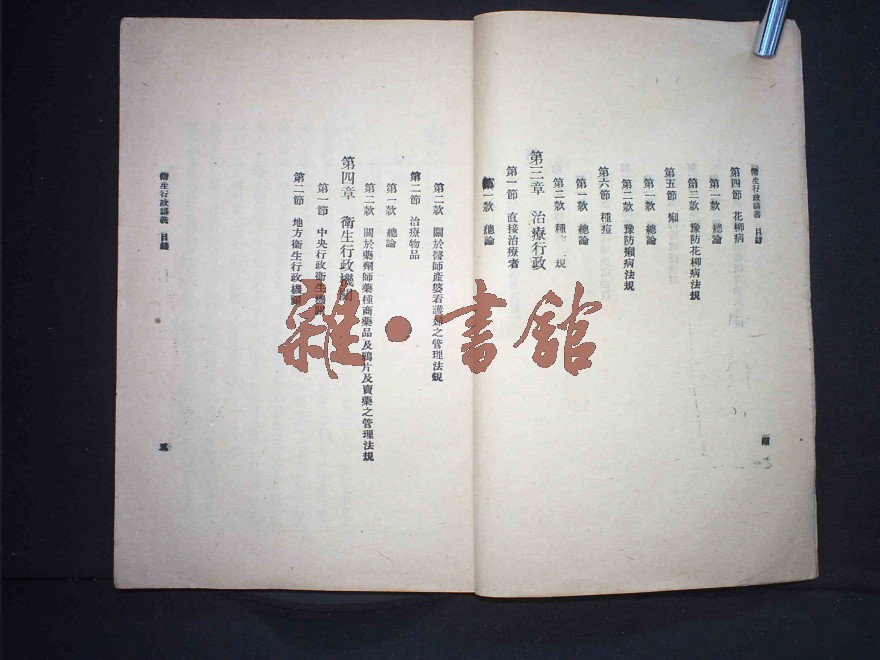 衛生行政講義 目錄
第四節 花柳病
第一款 總論
第二款 豫防花柳病法規
第五節 癩
第一款 總論
第二款 豫防癩病法規
第六節 種痘
第一款 總論
第二款 種 規
第三章 治療行政
第一節 直接治療者
第一款 總論
第二款 關於醫師產婆看護婦之管理法規
第二節 治療物品
第一款 總論
第二款 關於藥劑師藥種商藥品及鴉片及賣藥之管理法規
第四章 衛生行政機關
第一節 中央行政衛生機關
第二節 地方衛生行政機關
衛生行政講義 目錄
三
雜·書館